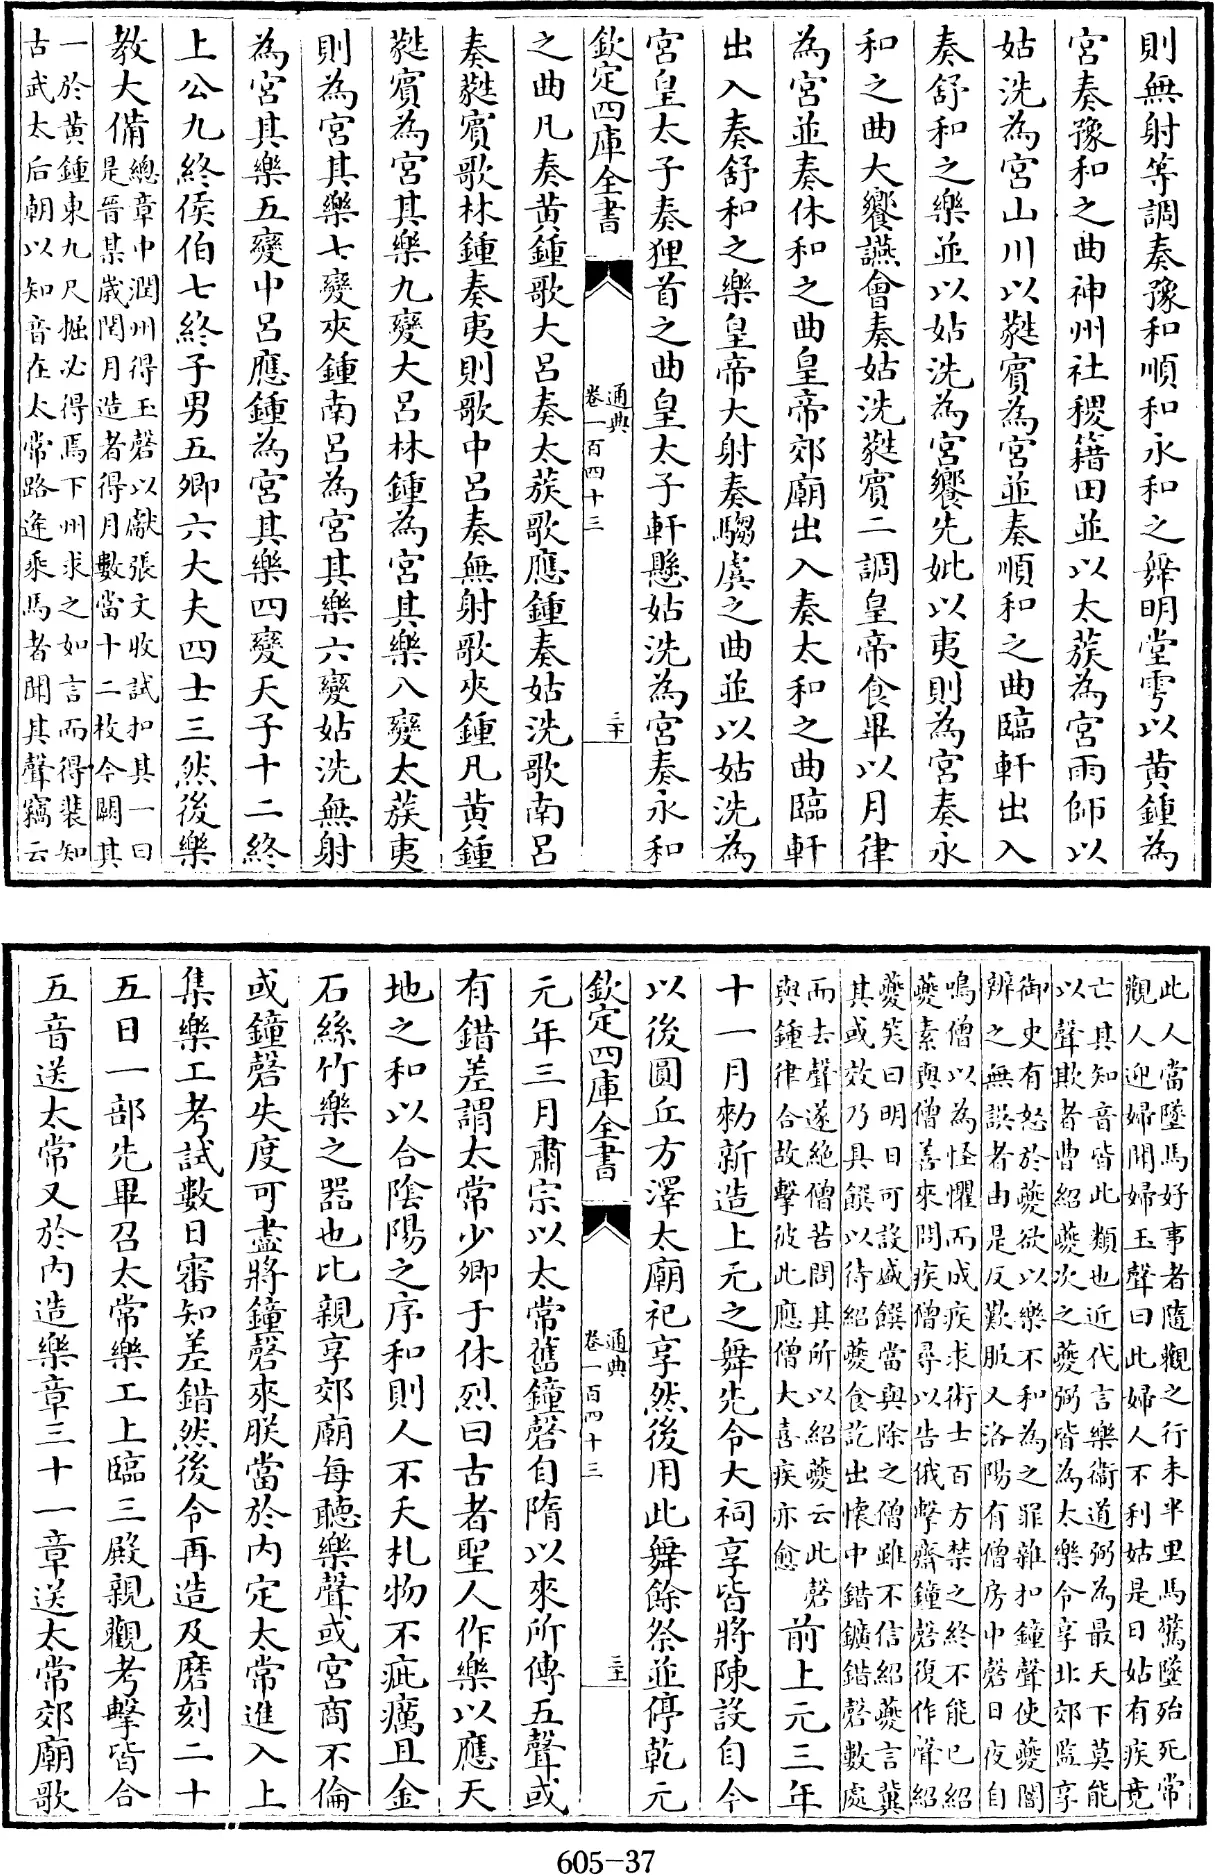 則無射等調奏豫和順和永和之舞明堂雩以黄鍾為
宮奏豫和之曲神州社稷籍田並以太蔟為宮雨師以
姑洗為宮山川以蕤賔為宮並奏順和之曲臨軒出入
奏舒和之樂並以姑洗為宮饗先妣以夷則為宮奏永
和之曲大饗讌會奏姑洗蕤賔二調皇帝食畢以月律
為宮並奏休和之曲皇帝郊廟出入奏太和之曲臨軒
出入奏舒和之樂皇帝大射奏騶虞之曲並以姑洗為
宮皇太子奏狸首之曲皇太子軒懸姑洗為宮奏永和
欽定四庫全書
通典
卷一百四十三
三十
之曲凡奏黄鍾歌大呂奏太蔟歌應鍾奏姑洗歌南呂
奏蕤賔歌林鍾奏夷則歌中呂奏無射歌夾鍾凡黄鍾
蕤賔為宮其樂九變大呂林鍾為宮其樂八變太蔟夷
則為宮其樂七變夾鍾南呂為宮其樂六變姑洗無射
為宮其樂五變中呂應鍾為宮其樂四變天子十二終
上公九終侯伯七終子男五卿六大夫四士三然後樂
教大備
總章中潤州得玉磬以獻張文收試扣其一曰
是晉某歲閏月造者得月數當十二枚今闕其
一於黄鍾東九尺掘必得焉下州求之如言而得裴知
古武太后朝以知音在太常路逢乘馬者聞其聲竊云
此人當墜馬好事者隨觀之行未半里馬驚墜殆死常
觀人迎婦聞婦玉聲曰此婦人不利姑是日姑有疾竟
亡其知音皆此類也近代言樂衞道弼為最天下莫能
以聲欺者曹紹夔次之夔弼皆為太樂令享北郊監享
御史有怒於夔欲以樂不和為之罪雜扣鐘聲使夔闇
辨之無誤者由是反歎服又洛陽有僧房中磬日夜自
鳴僧以為怪懼而成疾求術士百方禁之終不能已紹
夔素與僧善來問疾僧尋以告俄擊齋鐘磬復作聲紹
夔笑曰明日可設盛饌當與除之僧雖不信紹夔言冀
其或效乃具饌以待紹夔食訖出懷中錯鑢錯磬數處
而去聲遂絶僧苦問其所以紹夔云此磬
與鐘律合故擊彼此應僧大喜疾亦愈
前上元三年
十一月勑新造上元之舞先令大祠享皆將陳設自今
以後圓丘方澤太廟祀享然後用此舞餘祭並停乾元
欽定四庫全書
通典
卷一百四十三
三十一
元年三月肅宗以太常舊鐘磬自隋以來所傳五聲或
有錯差謂太常少卿于休烈曰古者聖人作樂以應天
地之和以合陰陽之序和則人不夭札物不疵癘且金
石絲竹樂之器也比親享郊廟每聽樂聲或宮商不倫
或鐘磬失度可盡將鐘磬來朕當於内定太常進入上
集樂工考試數日審知差錯然後令再造及磨刻二十
五日一部先畢召太常樂工上臨三殿親觀考擊皆合
五音送太常又於内造樂章三十一章送太常郊廟歌
605-37